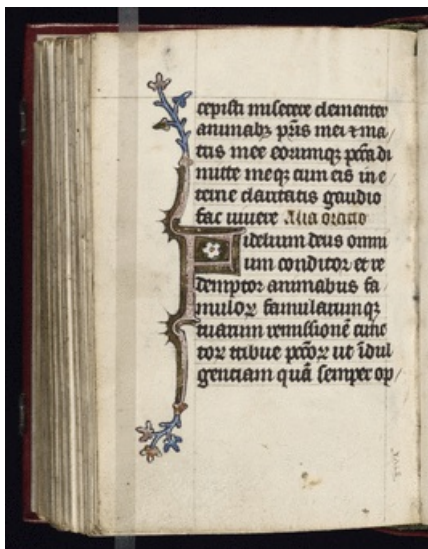 cepisti miserere clementer
animabꝫ pr̄is mei ⁊ ma/
tris mee eorumqꝫ pc̄ca di
mitte meqꝫ cum eis in e
terne claritatis gaudio
fac uiuere Alia oratio
Fidelium deus omni
um conditor et re
demptor animabus fa/
muloꝝ famularumqꝫ
tuarum remissionē cunc
toꝝ tribue pc̄coꝝ ut īdul
gentiam quā semper op/